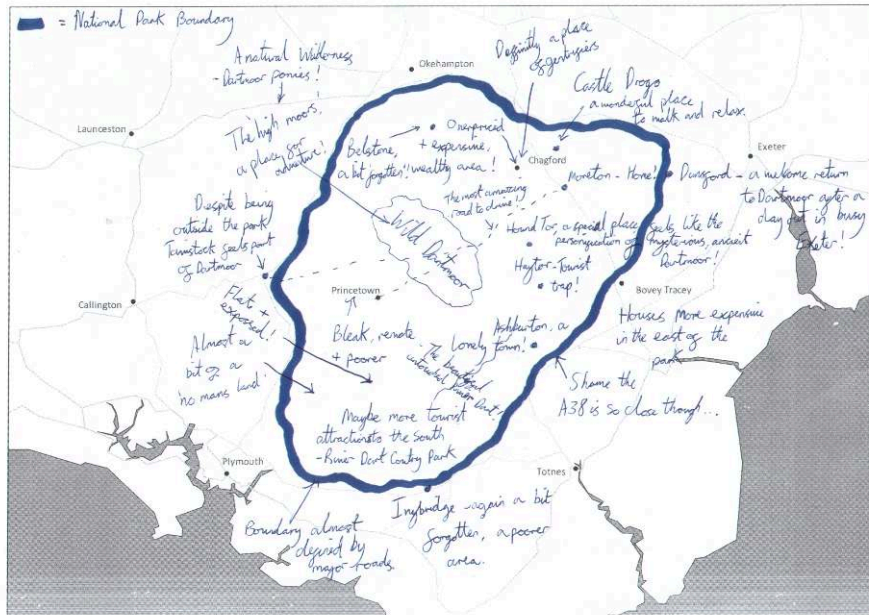 = National Park Boundary
A natural Wilderness
- Dartmoor ponies!
Okehampton
Definitly a place
of
Castle Drogo
a wonderful place
to walk and relax.
Launceston
The 'high moors'
a place for
adventure!
Belstone,
a bit forgotten!
Overpriced
+ expensive,
wealthy area!
Chagford
Exeter
The most amazing
road to drive!
Moreton - Home!
Dunsford - a welcome return
to Dartmoor after a
day out in busy
Exeter!
Despite being
outside the park
Tavistock feels part
of Dartmoor
Wild Dartmoor
Hound Tor, a special place feels like the
personification of mysterious, ancient
Dartmoor!
Haytor - Tourist
trap!
Callington
Princetown
Bovey Tracey
Flats +
exposed!
Almost a
bit of a
'no mans land'
Bleak, remote
+ poorer
Ashburton, a
lonely town!
The
untouched River Dart!
Houses more expensive
in the east of the
park
Shame the
A38 is so close though...
Maybe more tourist
attractions to the south
- River Dart Contry Park
Plymouth
Totnes
Ivybridge - again a bit
forgotten, a poorer
area.
Boundary almost
defined by
major roads